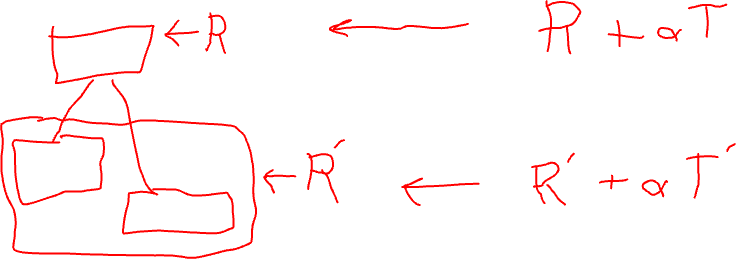 ← R ← R + αT
← R′ ← R′ + αT′